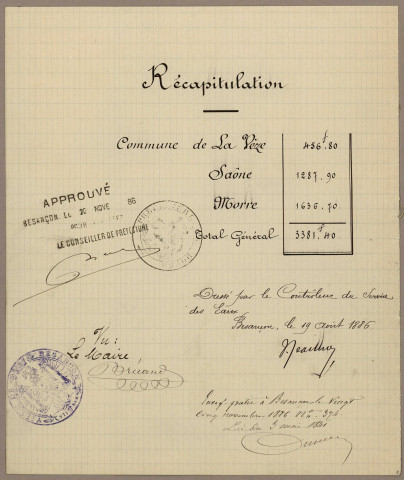 Récapitulation
Commune de La Vèze 456f.80
Saône 1287.90
Morre 1636.70
Total Général 3381f.40
APPROUVÉ
BESANÇON, LE 20 NOVE 86
LE CONSEILLER DE PRÉFECTURE
Dressé par le Contrôleur du Service
des Eaux
Besançon, le 19 août 1886
Vu:
Le Maire
Bruand
à Besançon le Vingt
cinq novembre 1886